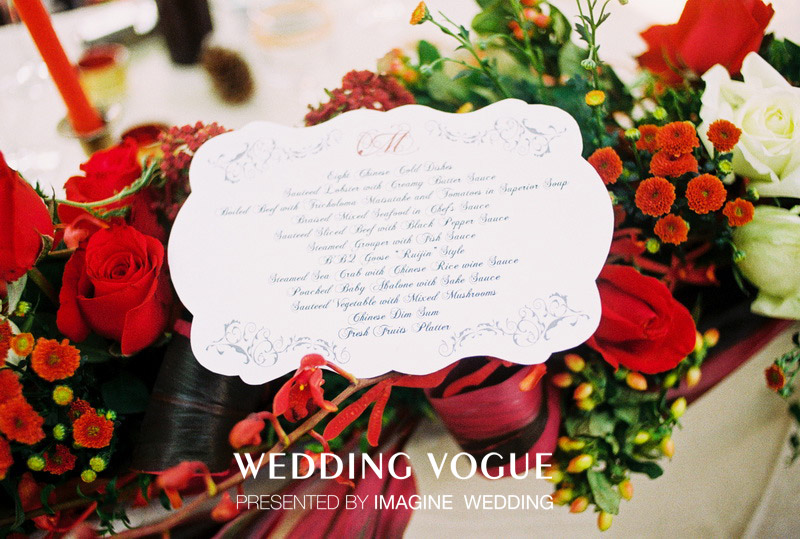 M
Eight Chinese Cold Dishes
Sauteed Lobster with Creamy Butter Sauce
Boiled Beef with Tricholoma Matsutake and Tomatoes in Superior Soup
Braised Mixed Seafood in Chef's Sauce
Sauteed Sliced Beef with Black Pepper Sauce
Steamed Grouper with Fish Sauce
B.B.Q Goose "Ruijin" Style
Steamed Sea Crab with Chinese Rice wine Sauce
Poached Baby Abalone with Sake Sauce
Sauteed Vegetable with Mixed Mushrooms
Chinese Dim Sum
Fresh Fruits Platter
WEDDING VOGUE
PRESENTED BY IMAGINE WEDDING